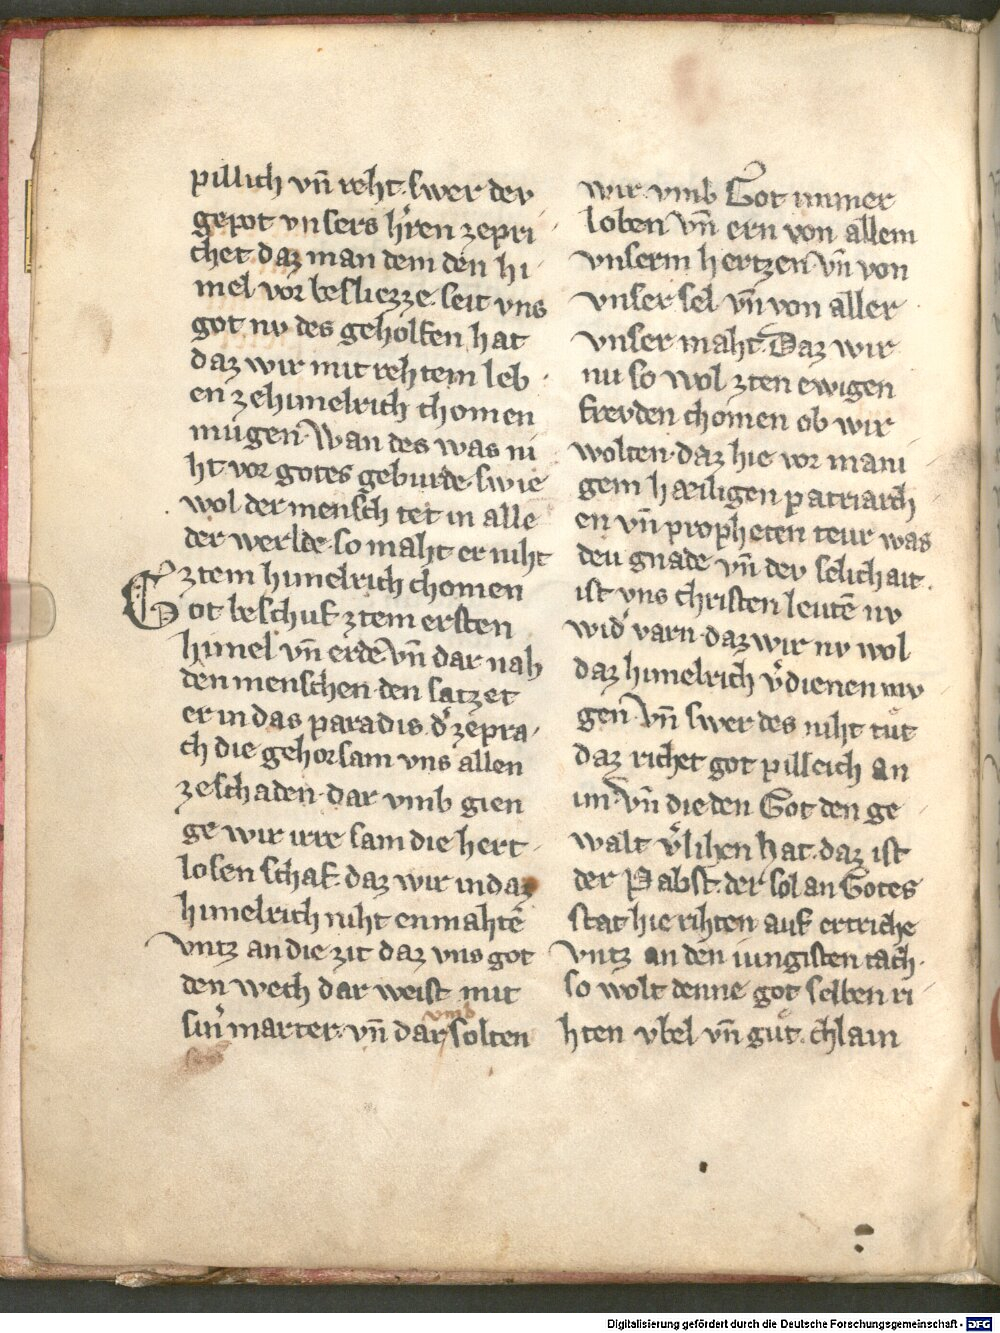 pillich vn̄ reht. swer der
gepot vnsers hr̄en zepri
chet. daz man dem den hi
mel vor besliezze. seit vns
got nv des geholfen hat
daz wir mit rehtem leb
en zehimelrich chomen
mugen. Wan des was ni
ht vor gotes geburde. swie
wol der mensch tet in alle
der werlde. so maht er niht
ztem himelrich chomen
Got beschuf ztem ersten
himel vn̄ erde. vn̄ dar nah
den menschen. den satzet
er in das paradis. d' zepra
ch die gehorsam vns allen
zeschaden. dar vmb gien
ge wir irre sam die hert
losen schaf. daz wir in daz
himelrich niht enmahtē
vntz an die zit daz vns got
den wech dar weist mit
sin' marter. vn̄ dar vmb solten
wir vmb Got immer
loben vn̄ ern von allem
vnserm hertzen. vn̄ von
vnser sel vn̄ von aller
vnser maht. Daz wir
nu so wol zten ewigen
frevden chomen ob wir
wolten. daz hie vor mani
gem hæiligen patriarch
en vn̄ propheten teur was
deu gnade vn̄ der selichait
ist vns christen leutē nv
wid' varn. daz wir nv wol
daz himelrich v'dienen mv
gen. vn̄ swer des niht tuͤt
daz richet got pilleich an
im. vn̄ die den Got den ge
walt v'lihen hat. daz ist
der Pabst. der sol an Gotes
stat hie rihten auf ertriche
vntz an den iungisten tach.
so wolt denne got selben ri
hten vbel vn̄ guͤt. chlain
Digitalisierung gefördert durch die Deutsche Forschungsgemeinschaft - DFG